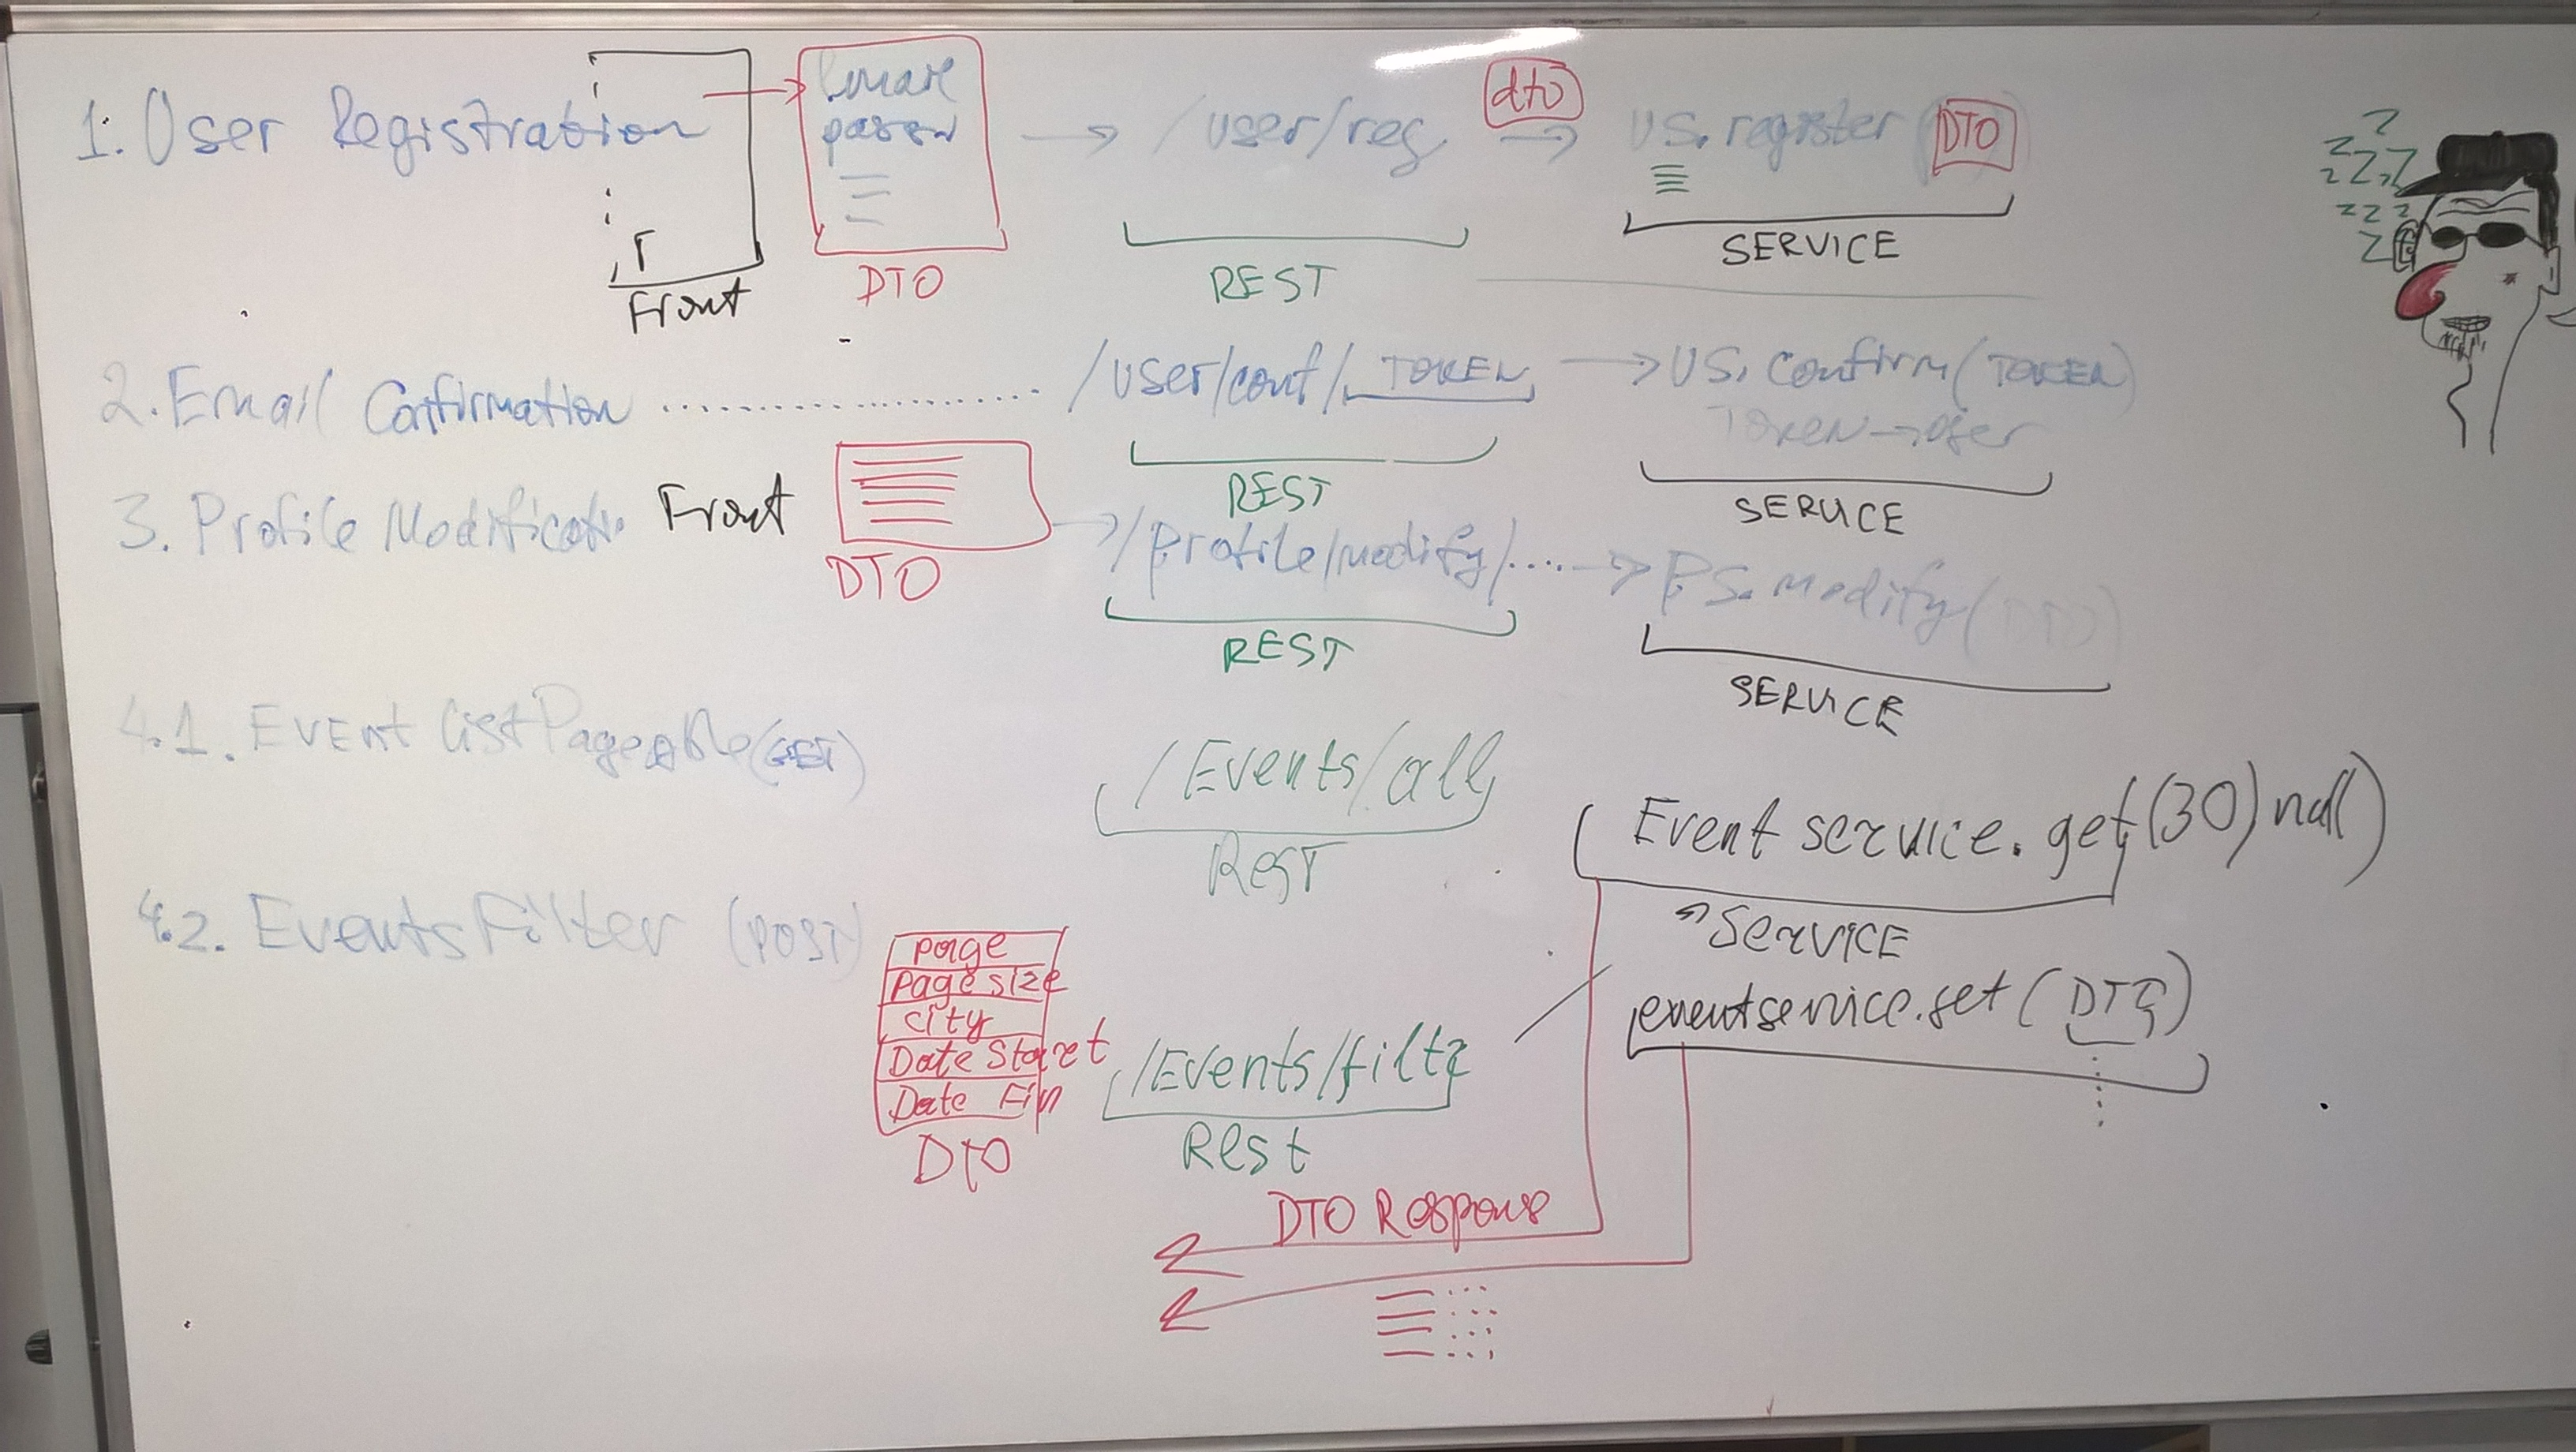 1. User Registration
Front
email
passw
DTO
/user/reg
REST
dto
US.register (DTO)
SERVICE
z z z z z z z z z z
2. Email Confirmation .................... /user/conf/ TOKEN
REST
US. Confirm (TOKEN)
TOKEN → User
SERVICE
3. Profile Modificati
Front
DTO
/Profile/modify/....
REST
PS. modify (DTO)
SERVICE
4.1. Event List Pageable (GET)
/Events/all
REST
Event service. get (30) null)
SERVICE
4.2. Events Filter (POST)
page
page size
city
Date Start
Date Fin
DTO
/Events/filtr
Rest
eventservice.get (DTO)
DTO Response